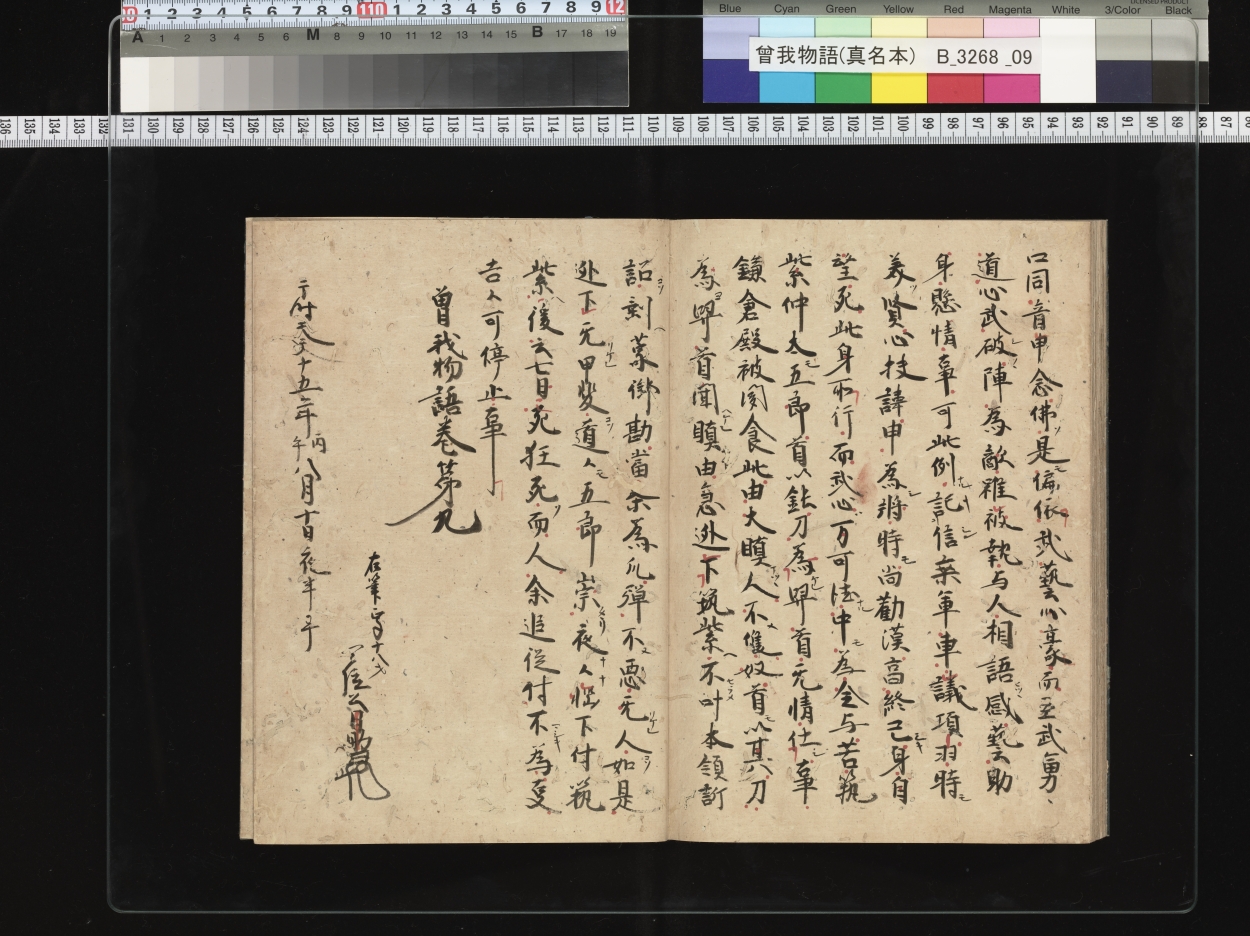 Blue Cyan Green Yellow Red Magenta White 3/Color Black
曾我物語(真名本) B_3268_09
口同音申念佛是偏依武藝心豪而至武勇、
道心武破陣為敵雖被執与人相語感藝助
身懸情事可此例記信棄軍車議項羽時
義賢心投諱申為將時尚勸漢高終己身自
望死此身不行而武心万可法中為全与苦執
紫仲太五郎首以鈍刀為舁首无情仕事
鎌倉殿被聞食此由大瞋人不便奴首以其刀
為舁首聞瞋由急迯下筑紫不叶本領訴
詔剩蒙御勘當余為爪弾不悪无人如是
迯下无甲斐道々五郎崇夜々悩下付筑
紫後云七日死狂死而人余追従付不為支
吉々可停止事
曽我物語巻第九
于時天文十五年丙午八月十日夜半
右筆 十八才